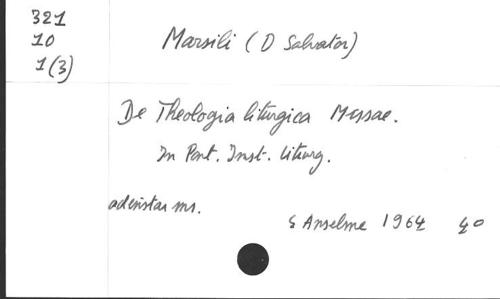 321
10
1(3)
Marsili (D Salvator)
De Theologia liturgica Missae.
In Pont. Inst. Liturg.
ad instar ms.
S Anselme 1964 4o